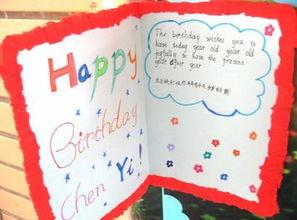 Happy
Birthday
Chen Yi!
The birthday wishes you to
have today year old year old
joyfully to have the present
year after year